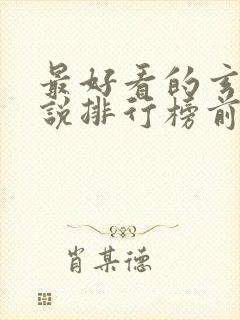 最好看的玄
說排行榜前
肖某德